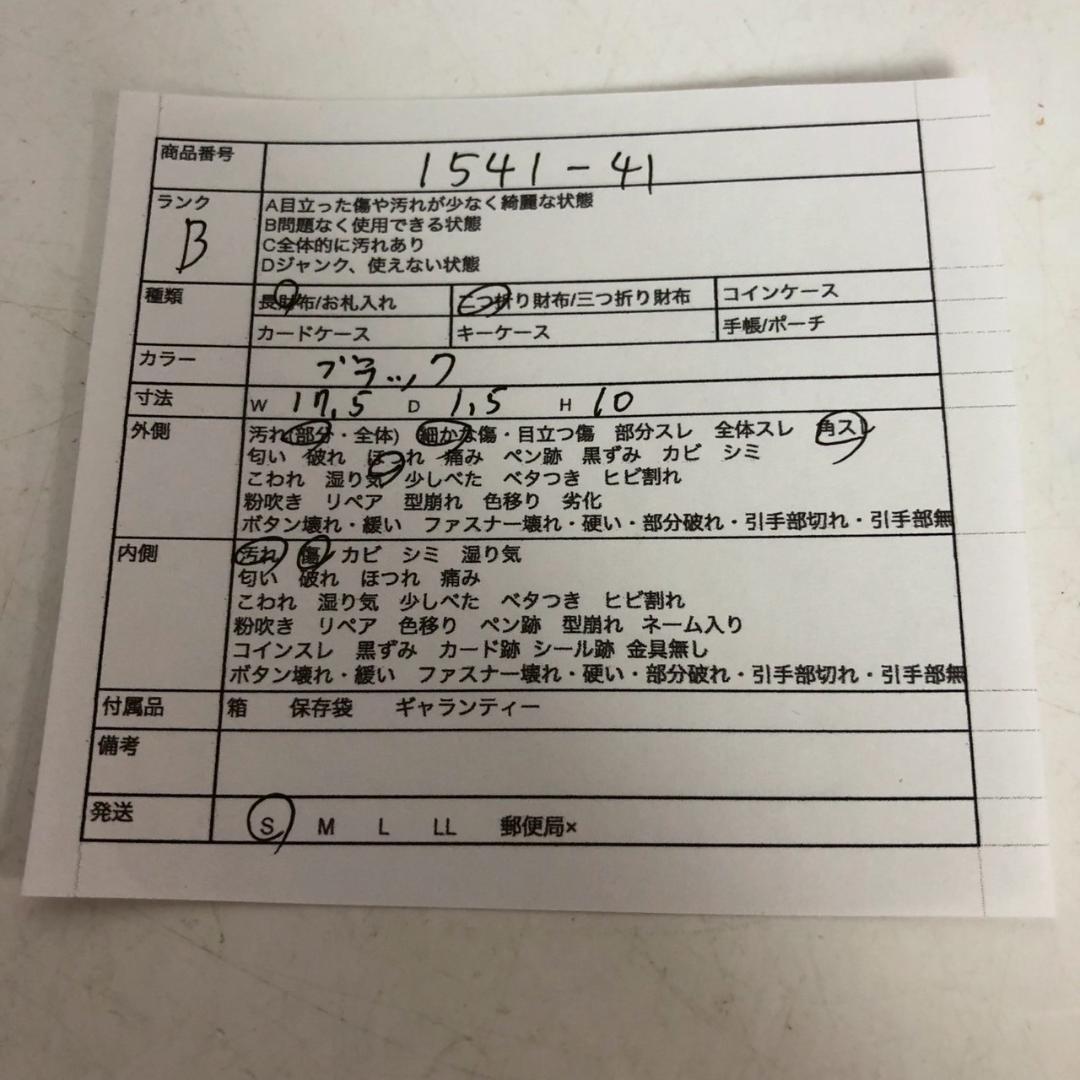 商品番号 1541-41
ランク A目立った傷や汚れが少なく綺麗な状態
B B問題なく使用できる状態
C全体的に汚れあり
Dジャンク、使えない状態
種類 長財布/お札入れ 二つ折り財布/三つ折り財布 コインケース
カードケース キーケース 手帳/ポーチ
カラー ブラック
寸法 W 17.5 D 1.5 H 10
外側 汚れ(部分・全体) 細かな傷・目立つ傷 部分スレ 全体スレ 角スレ
匂い 破れ ほつれ 痛み ペン跡 黒ずみ カビ シミ
こわれ 湿り気 少しべた ベタつき ヒビ割れ
粉吹き リペア 型崩れ 色移り 劣化
ボタン壊れ・緩い ファスナー壊れ・硬い・部分破れ・引手部切れ・引手部無
内側 汚れ 傷 カビ シミ 湿り気
匂い 破れ ほつれ 痛み
こわれ 湿り気 少しべた ベタつき ヒビ割れ
粉吹き リペア 色移り ペン跡 型崩れ ネーム入り
コインスレ 黒ずみ カード跡 シール跡 金具無し
ボタン壊れ・緩い ファスナー壊れ・硬い・部分破れ・引手部切れ・引手部無
付属品 箱 保存袋 ギャランティー
備考
発送 S M L LL 郵便局×